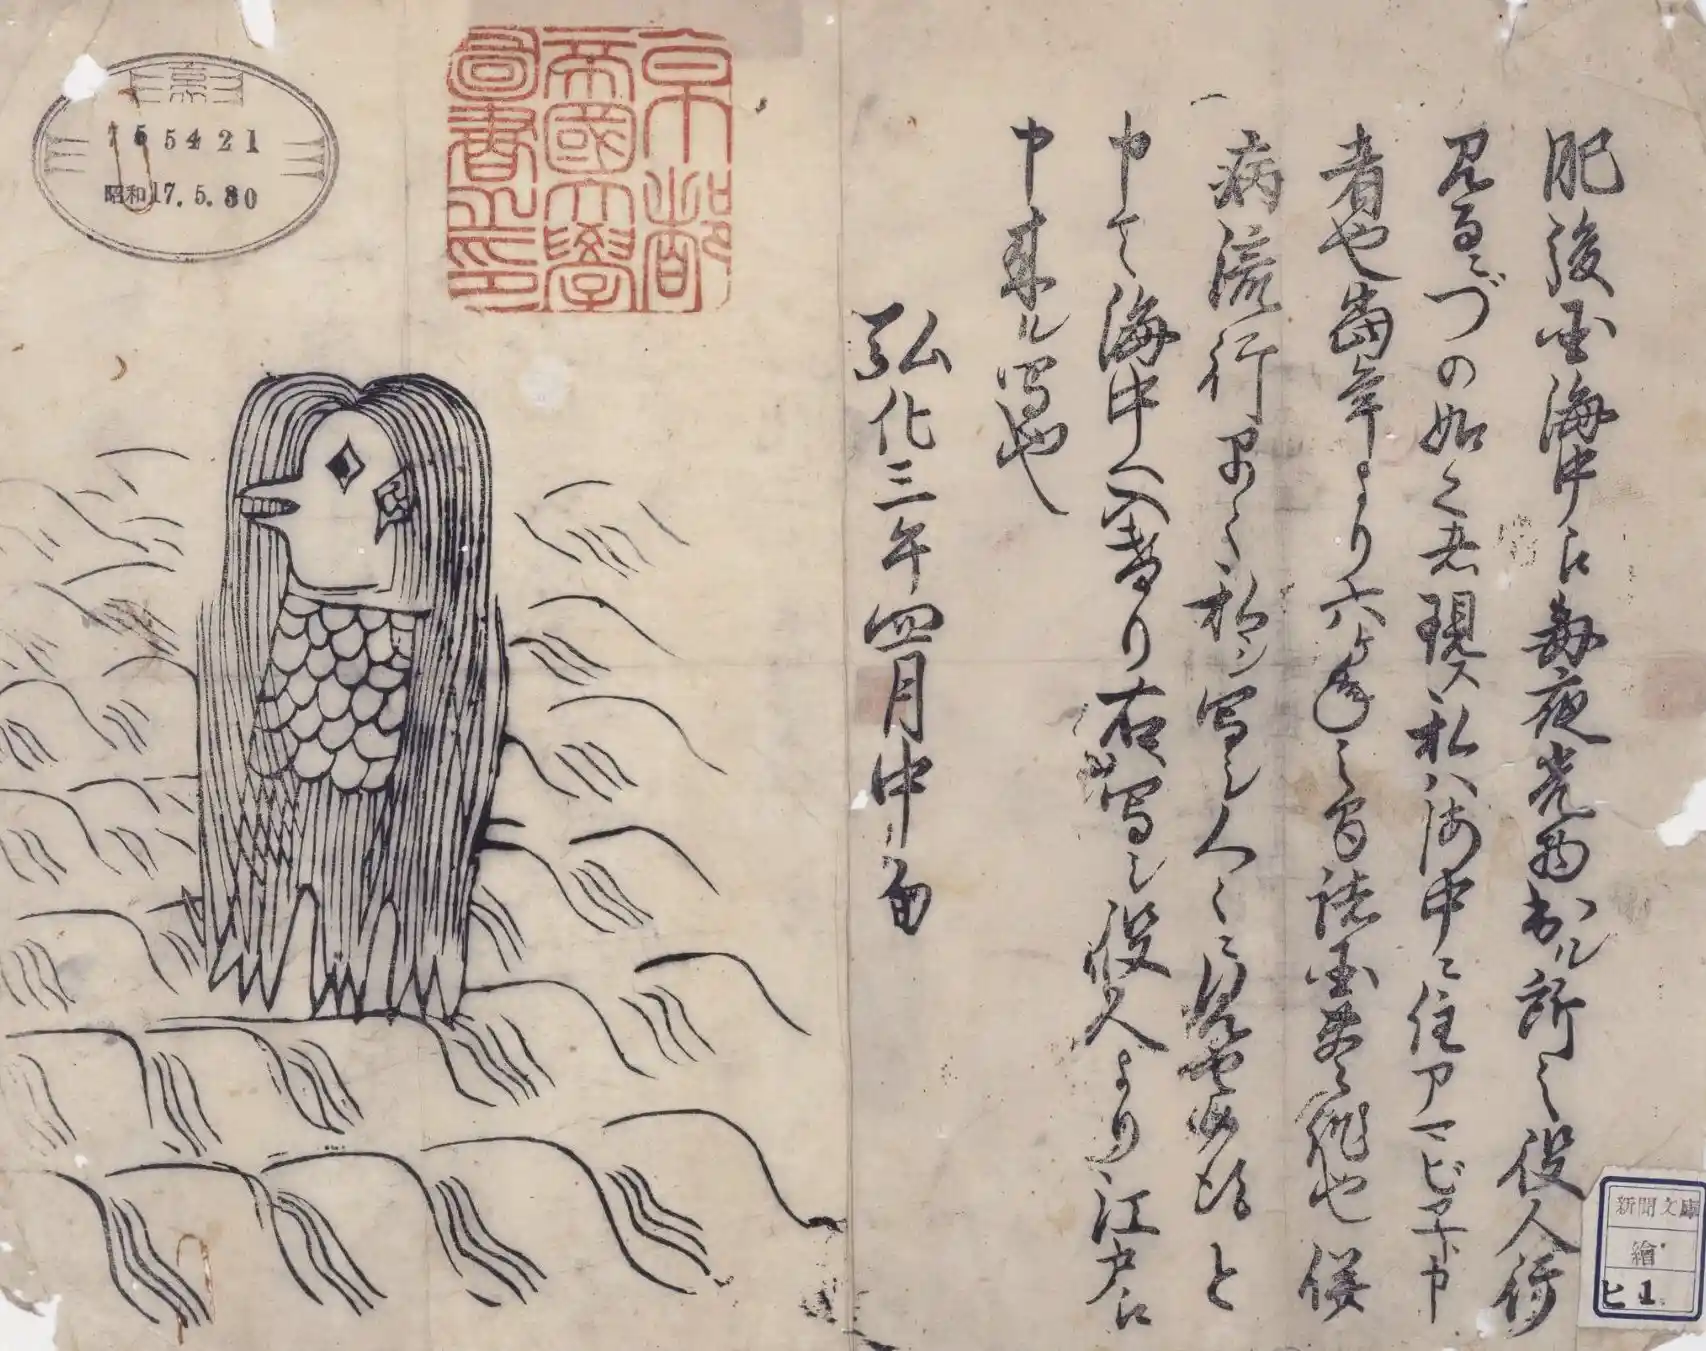 肥後国海中江毎夜光物出ル所之役人行
見るニづの如く者現ス私ハ海中ニ住アマビヱト申
者也當年より六ヶ年之間諸国豊作也併
病流行早々私シ写シ人々ニ見せ候得と
申て海中へ入けり右写シ役人より江戸江
申来ル写也
弘化三年四月中旬
京都
帝國大學
圖書之印
755421
昭和17.5.30
新聞文庫
繪
ヒ1